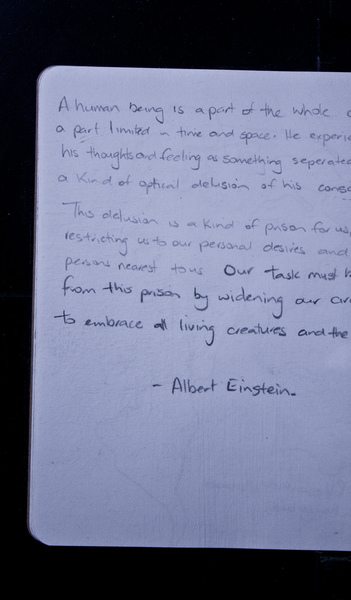 A human being is a part of the whole
a part limited in time and space. He experi
his thoughts and feeling as something seperated
a kind of optical delusion of his consc
This delusion is a kind of prison for us,
restricting us to our personal desires and
persons nearest to us Our task must
from this prison by widening our cir
to embrace all living creatures and the
- Albert Einstein.